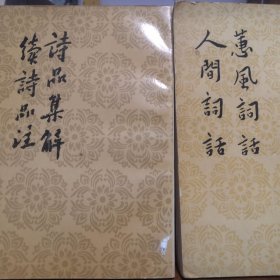 詩品集解
續詩品注
蕙風詞話
人間詞話